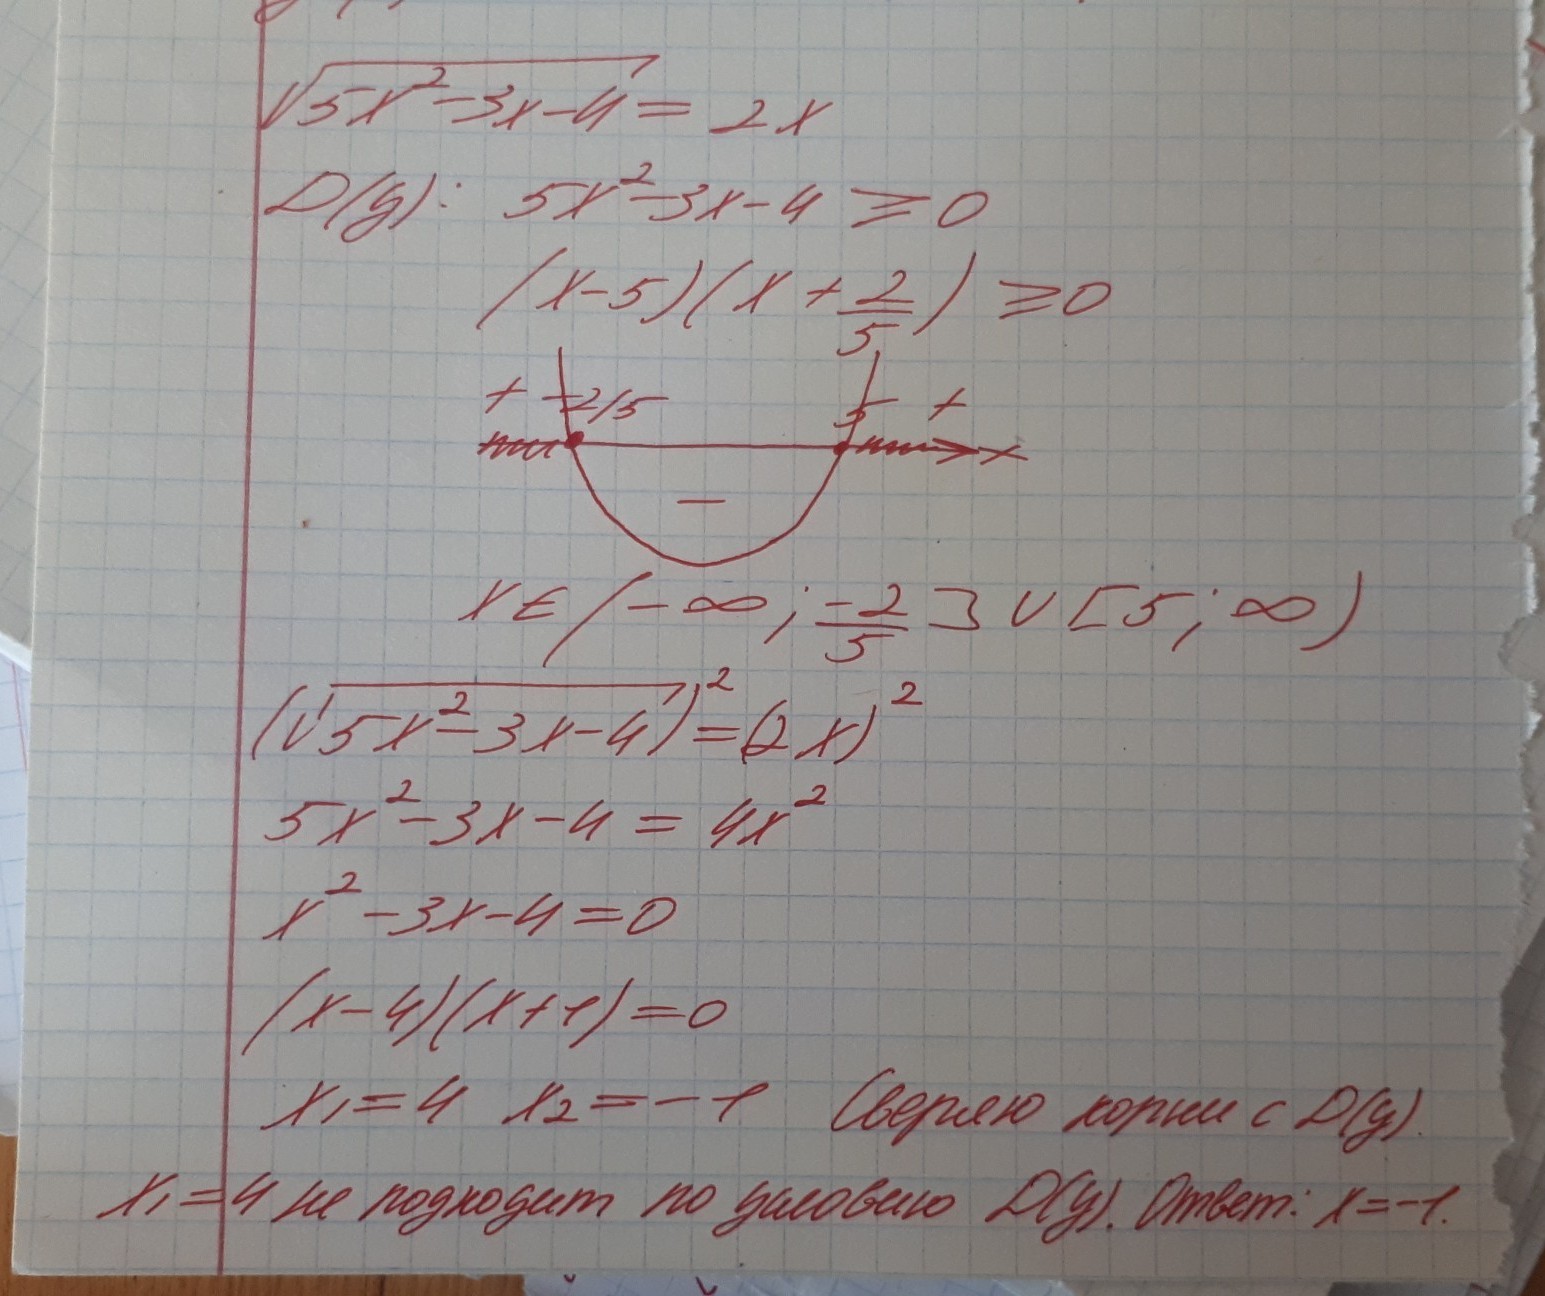 √(5x² - 3x - 4) = 2x
D(y): 5x² - 3x - 4 ≥ 0
(x - 5)(x + 2/5) ≥ 0
+ -2/5 5 +
x
-
x ∈ (-∞; -2/5] ∪ [5; ∞)
(√(5x² - 3x - 4))² = (2x)²
5x² - 3x - 4 = 4x²
x² - 3x - 4 = 0
(x - 4)(x + 1) = 0
x₁ = 4 x₂ = -1 Сверяю корни с D(y).
x₁ = 4 не подходит по условию D(y). Ответ: x = -1.